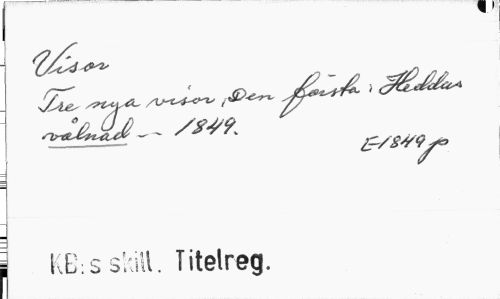 Visor
Tre nya visor, Den första: Heddas
vålnad -- 1849.
E1849p
KB:s skill. Titelreg.